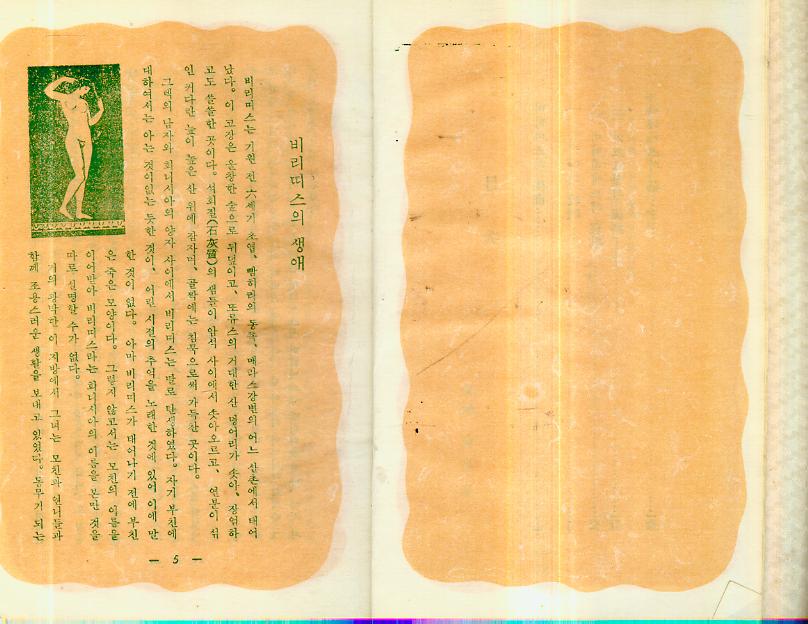 비리띠스의 생애
비리띠스는 기원 전 六세기 초엽, 빰히리의 동쪽, 매라스강변의 어느 산촌에서 태어
났다. 이 고장은 울창한 숲으로 뒤덮이고, 또류스의 거대한 산 덩어리가 솟아, 장엄하
고도 쓸쓸한 곳이다. 석회질(石灰質)의 샘들이 암석 사이에서 솟아오르고, 염분이 섞
인 커다란 늪이 높은 산 위에 잠자며, 골짝에는 침묵으로써 가득찬 곳이다.
그렉의 남자와 희니시아의 양자 사이에서 비리띠스는 딸로 탄생하였다. 자기 부친에
대하여서는 아는 것이없는 듯한 것이, 어린 시절의 추억을 노래한 것에 있어 이에 만
한 것이 없다. 아마 비리띠스가 태어나기 전에 부친
은 죽은 모양이다. 그렇지 않고서는 모친의 이름을
이어받아 비리띠스라는 희니시아의 이름을 본만 것을
따로 설명할 수가 없다.
거의 광막한 이 지방에서 그녀는 모친과 언니들과
함께 조용스러운 생활을 보내고 있었다. 동무가 되는
— 5 —